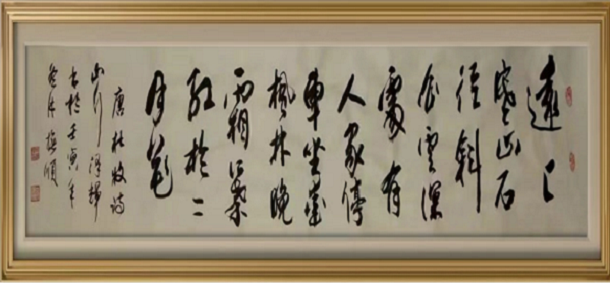 遠上
寒山石
徑斜
白雲深
處有
人家停
車坐愛
楓林晚
霜葉
紅於二
月花
唐杜牧詩
山行
書於壬寅年